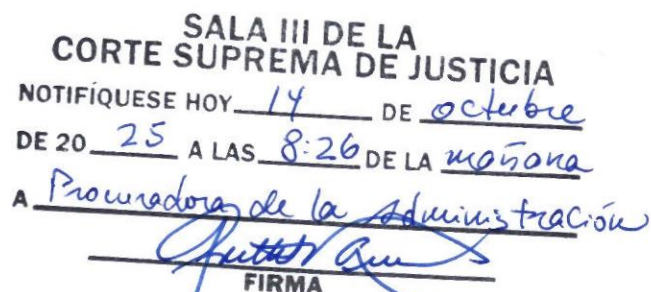 SALA III DE LA
CORTE SUPREMA DE JUSTICIA
NOTIFÍQUESE HOY 14 DE octubre
DE 20 25 A LAS 8:26 DE LA mañana
A Procuradora de la Administración
FIRMA